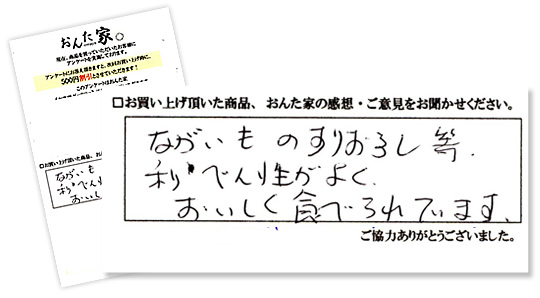 おんた家。
現在、商品を買っていただいたお客様に
アンケートを実施しております。
アンケートにお答え頂きますと、次回お買い上げ時に、
500円割引とさせていただきます!
このアンケートはおんた家
□お買い上げ頂いた商品、おんた
ながいも
利べん
おいし
□お買い上げ頂いた商品、おんた家の感想・ご意見をお聞かせください。
ながいものすりおろし等、
利べん性がよく、
おいしく食べられています。
ご協力ありがとうございました。